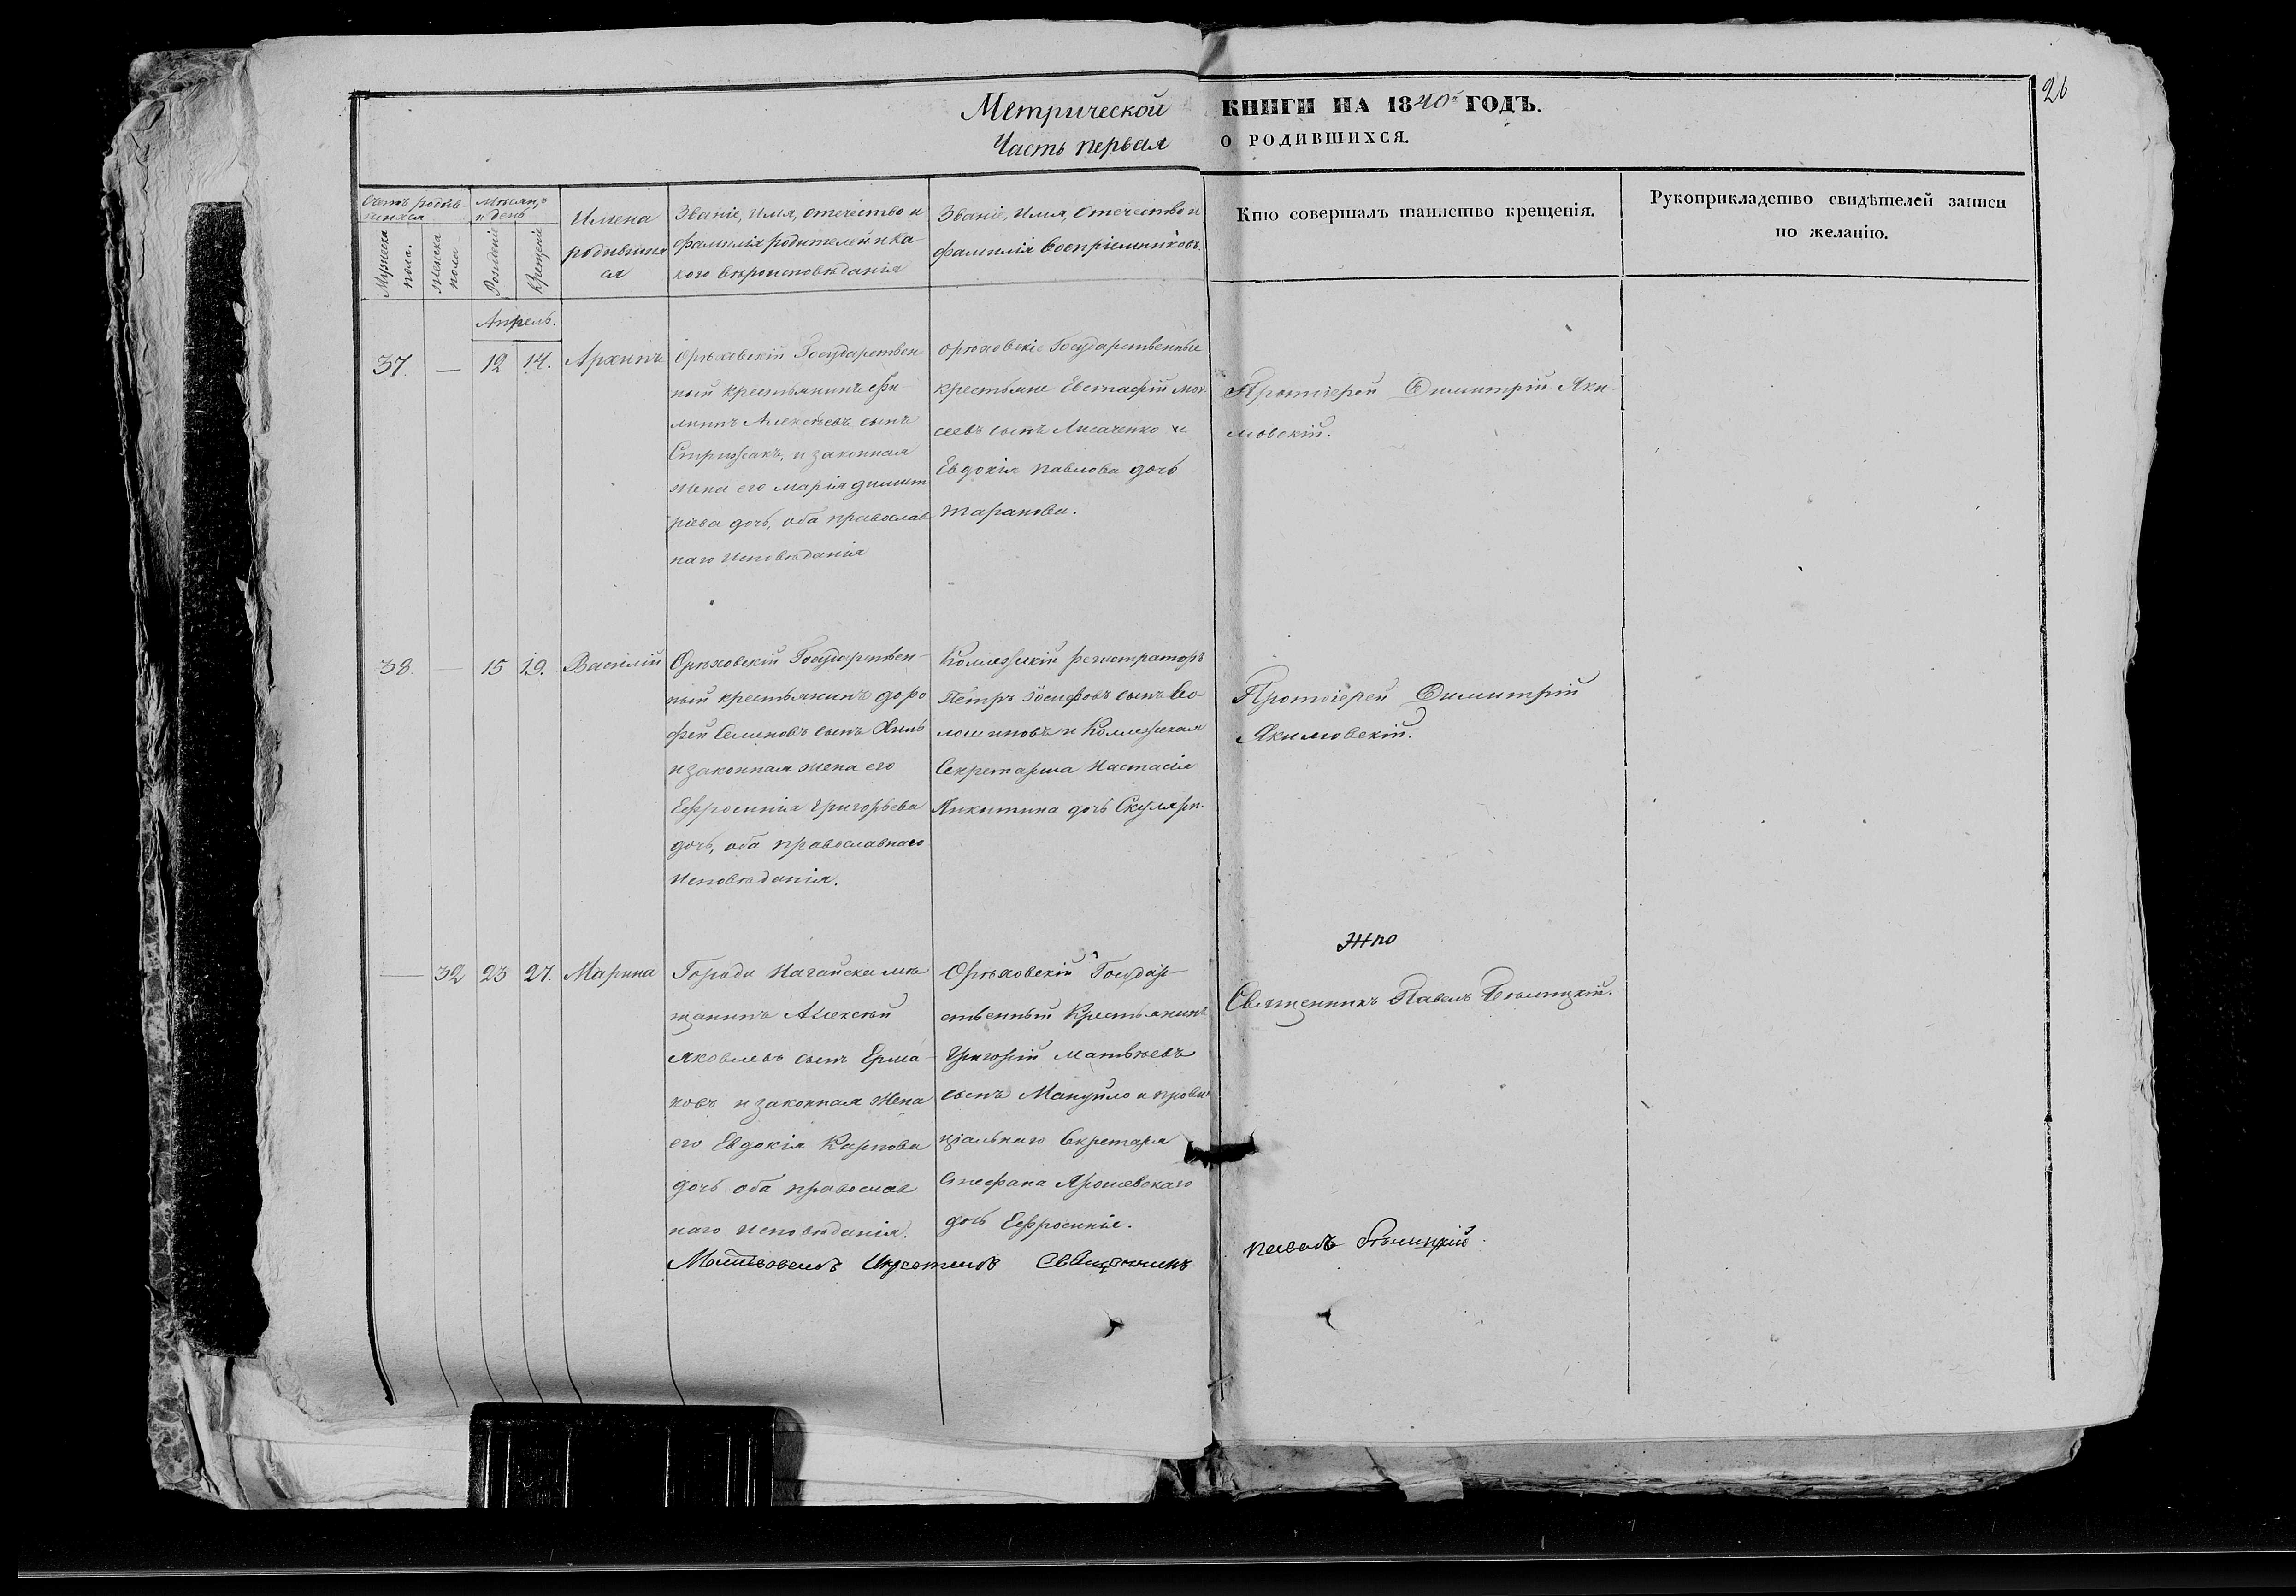 26
Метрической КНИГИ НА 1840й ГОДЪ.
Часть первая О РОДИВШИХСЯ.
Счетъ родив-
шихся
Мужеска пола.
Женска пола
Мѣсяцъ
и день
Рожденіе
Крещеніе
Имена
родивших
ся
Званіе, Имя, отечество и
фамилія родителей и ка-
кого вѣроисповѣданія
Званіе, Имя, Отечество и
фамилія Воспріемниковъ.
Кто совершалъ таинство крещенія.
Рукоприкладство свидѣтелей записи
по желанію.
Апрель.
37. — 12 14. Архипъ
Орѣховскій Государствен-
ный крестьянинъ Фи-
липъ Алексѣевъ сынъ
Стрижакъ, и законная
жена его Марія димит
ріева дочь, оба православ
наго Исповѣданія
орѣховскіе Государственные
крестьяне Евстафій Мои
сеевъ сынъ Лисаченко и
Евдокія Павлова дочь
Таранова.
Протоіерей Димитрій Яки-
мовскій.
38. — 15 19. Василій
Орѣховскій Государствен-
ный крестьянинъ доро
фей Семеновъ сынъ
и законная жена его
Ефросинія Григорьева
дочь, оба православнаго
Исповѣданія.
Коллежскій регистраторъ
Петръ Іосифовъ сынъ Во
лошиновъ и Коллежская
Секретарша Настасія
Никитина дочь Скуляри.
Протоіерей Димитрій
Якимовскій.
— 32 23 27. Марина
Города Нагайска мѣ
щанинъ Алексѣй
Яковлевъ сынъ Ерма-
ковъ и законная жена
его Евдокія Карпова
дочь оба православ
наго Исповѣданія.
Орѣховскій Государ-
ственный Крестьянинъ
Григорій Матвѣевъ
сынъ Мануйло и прови
нціальнаго Секретаря
Стефана Ярошевскаго
дочь Ефросинія.
Священникъ Павелъ Бѣлицкій.
Молитвовалъ И крестилъ Священникъ Павелъ Бѣлицкій.